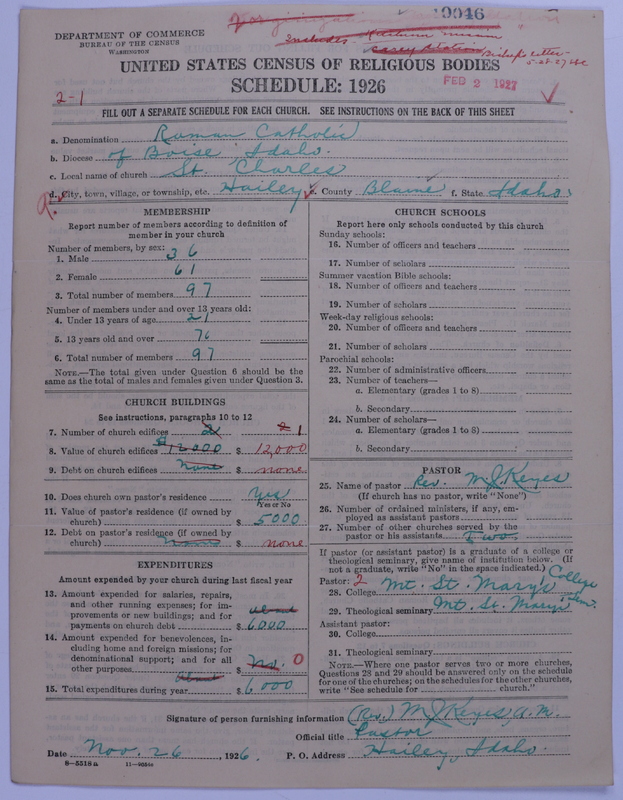 DEPARTMENT OF COMMERCE
BUREAU OF THE CENSUS
WASHINGTON
0046
Includes
Casey Station Bishop's letter-
UNITED STATES CENSUS OF RELIGIOUS BODIES
SCHEDULE: 1926
FEB 2 1927
2-1
FILL OUT A SEPARATE SCHEDULE FOR EACH CHURCH. SEE INSTRUCTIONS ON THE BACK OF THIS SHEET
a. Denomination Roman Catholic
b. Diocese of Boise Idaho.
c. Local name of church St. Charles
d. City, town, village, or township, etc. Hailey e. County Blaine f. State Idaho
MEMBERSHIP
Report number of members according to definition of
member in your church
Number of members, by sex:
1. Male 36
2. Female 61
3. Total number of members 97
Number of members under and over 13 years old:
4. Under 13 years of age 21
5. 13 years old and over 76
6. Total number of members 97
NOTE.—The total given under Question 6 should be the
same as the total of males and females given under Question 3.
CHURCH BUILDINGS
See instructions, paragraphs 10 to 12
7. Number of church edifices 2 2 1
8. Value of church edifices $12000 $ 12,000
9. Debt on church edifices none $ none
10. Does church own pastor's residence Yes
Yes or No
11. Value of pastor's residence (if owned by
church) $ 5000
12. Debt on pastor's residence (if owned by
church) none $ none
EXPENDITURES
Amount expended by your church during last fiscal year
13. Amount expended for salaries, repairs,
and other running expenses; for im-
provements or new buildings; and for about
payments on church debt $6000
14. Amount expended for benevolences, in-
cluding home and foreign missions; for
denominational support; and for all
other purposes $ no. 0
about
15. Total expenditures during year $ 6000
CHURCH SCHOOLS
Report here only schools conducted by this church
Sunday schools:
16. Number of officers and teachers
17. Number of scholars
Summer vacation Bible schools:
18. Number of officers and teachers
19. Number of scholars
Week-day religious schools:
20. Number of officers and teachers
21. Number of scholars
Parochial schools:
22. Number of administrative officers
23. Number of teachers—
a. Elementary (grades 1 to 8)
b. Secondary
24. Number of scholars—
a. Elementary (grades 1 to 8)
b. Secondary
PASTOR
25. Name of pastor Rev. M J Keyes
(If church has no pastor, write "None")
26. Number of ordained ministers, if any, em-
ployed as assistant pastors
27. Number of other churches served by the
pastor or his assistants Two
If pastor (or assistant pastor) is a graduate of a college or
theological seminary, give name of institution below. (If
not a graduate, write "No" in the space indicated.)
Pastor: 2
28. College Mt. St. Mary's College
29. Theological seminary Mt. St. Mary's Sem.
Assistant pastor:
30. College
31. Theological seminary
NOTE.—Where one pastor serves two or more churches,
Questions 28 and 29 should be answered only on the schedule
for one of the churches; on the schedules for the other churches,
write "See schedule for church."
Signature of person furnishing information (Rev.) M J Keyes, A.M.
Official title Pastor
Date Nov. 26, 1926. P. O. Address Hailey, Idaho.
8-5518 a